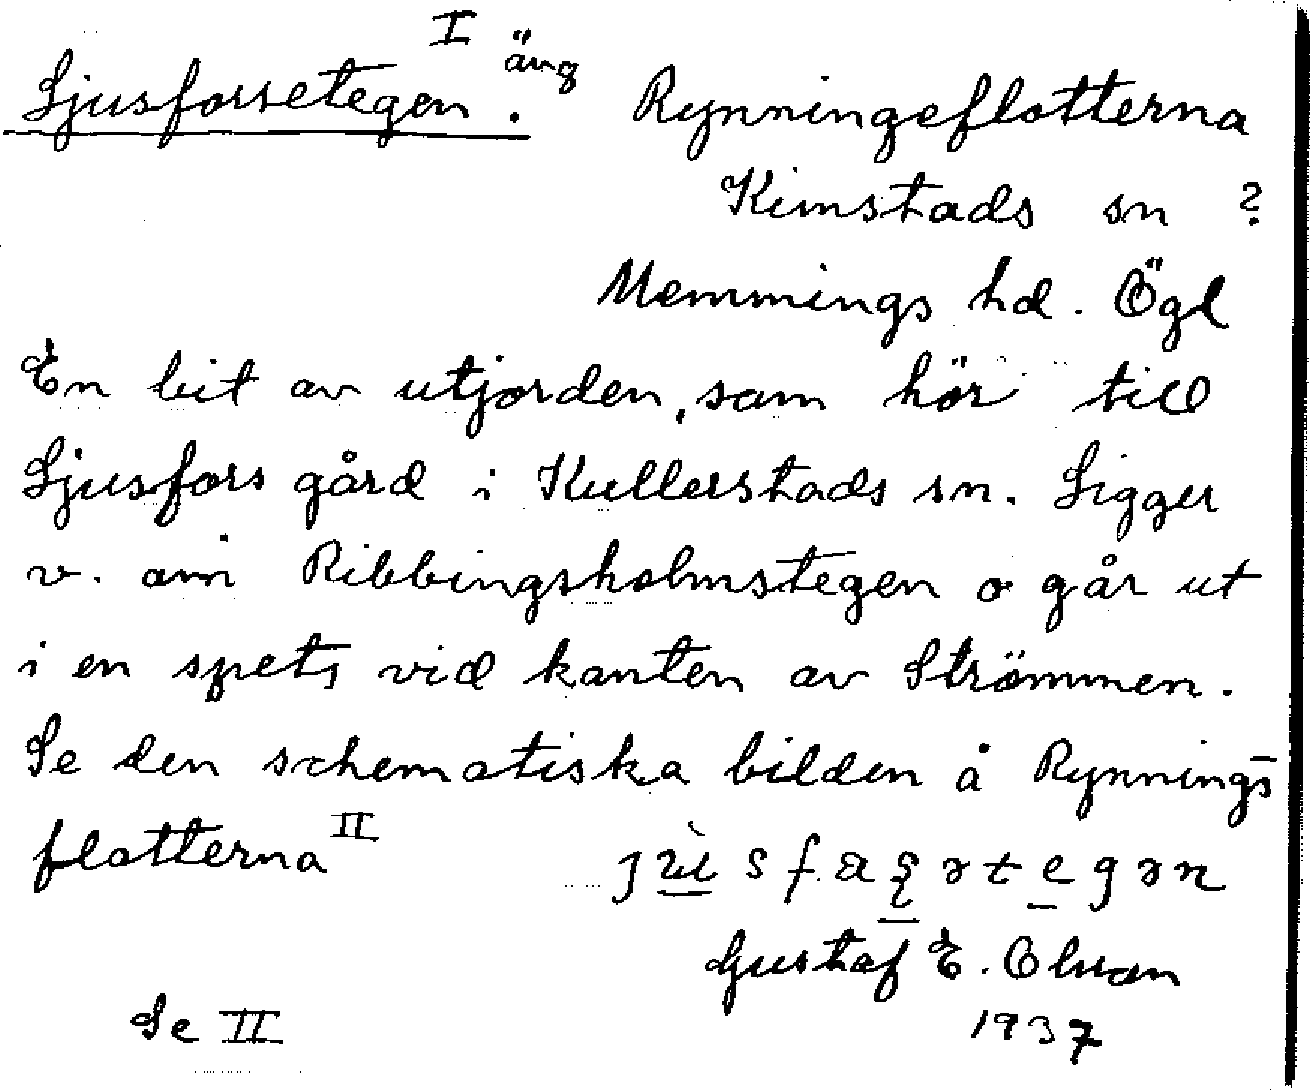 I
Ljusforsetegen. äng Rynningeflotterna
Kimstads sn ?
Memmings hd. Ögl
En bit av utjorden, som hör till
Ljusfors gård i Kullerstads sn. Ligger
v. om Ribbingsholmstegen o går ut
i en spets vid kanten av Strömmen.
Se den schematiska bilden å Rynnings-
flotterna II
Gustaf E. Olsson
Se II 1937